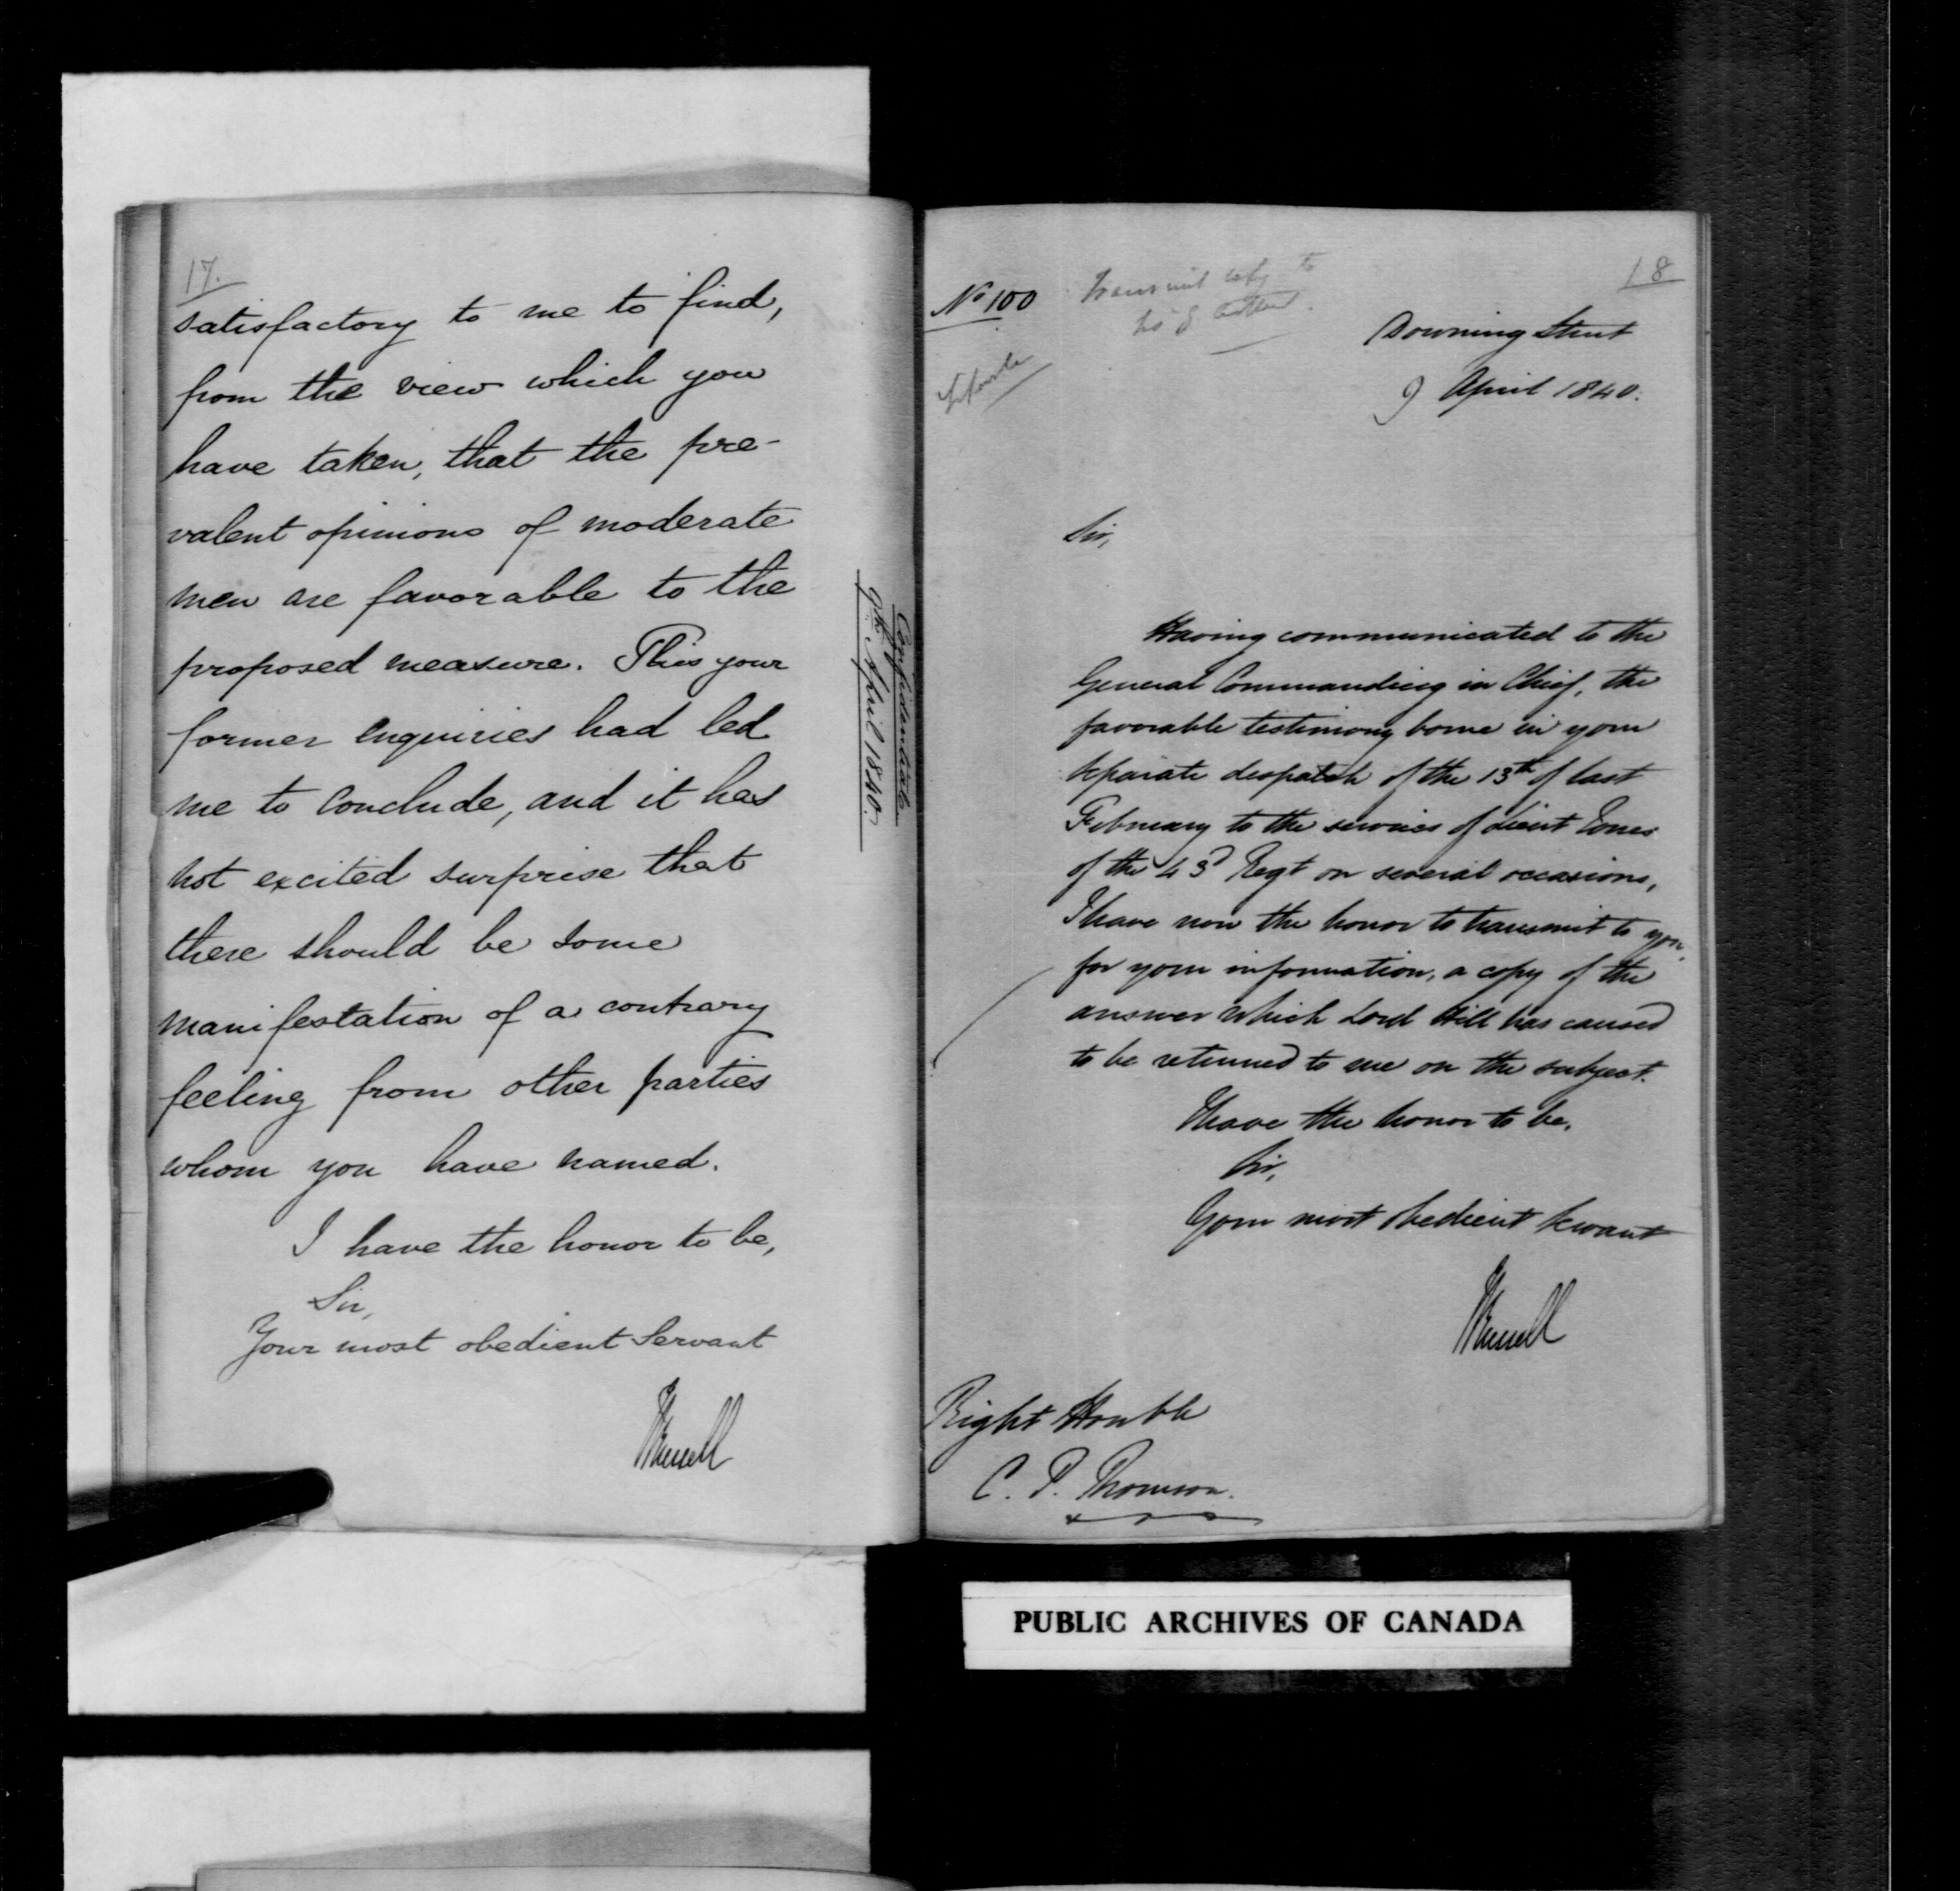 17.
satisfactory to me to find,
from the view which you
have taken, that the pre-
valent opinions of moderate
men are favorable to the
proposed measure. This your
former enquiries had led
me to conclude, and it has
not excited surprise that
there should be some
manifestation of a contrary
feeling from other parties
whom you have named.
I have the honor to be,
Sir,
Your most obedient Servant
JRussell
Confidential
9th April 1840.
18
No 100
Transmit copy to
Downing Street
9 April 1840.
Sir,
Having communicated to the
General Commanding in Chief, the
favorable testimony borne in your
separate despatch of the 13th of last
February to the services of Lieut Jones
of the 43d Regt on several occasions,
I have now the honor to transmit to you,
for your information, a copy of the
answer which Lord Hill has caused
to be returned to me on the subject.
I have the honor to be,
Sir,
Your most obedient Servant
JRussell
Right Honble
C. P. Thomson.
PUBLIC ARCHIVES OF CANADA